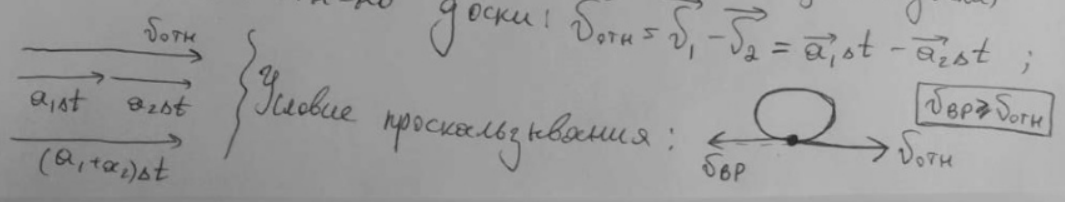 доски: v⃗отн = v⃗₁ - v⃗₂ = a⃗₁Δt - a⃗₂Δt ;
vотн
a₁Δt a₂Δt
(a₁+a₂)Δt
Условие проскальзывания :
vвр vотн
vвр ≥ vотн